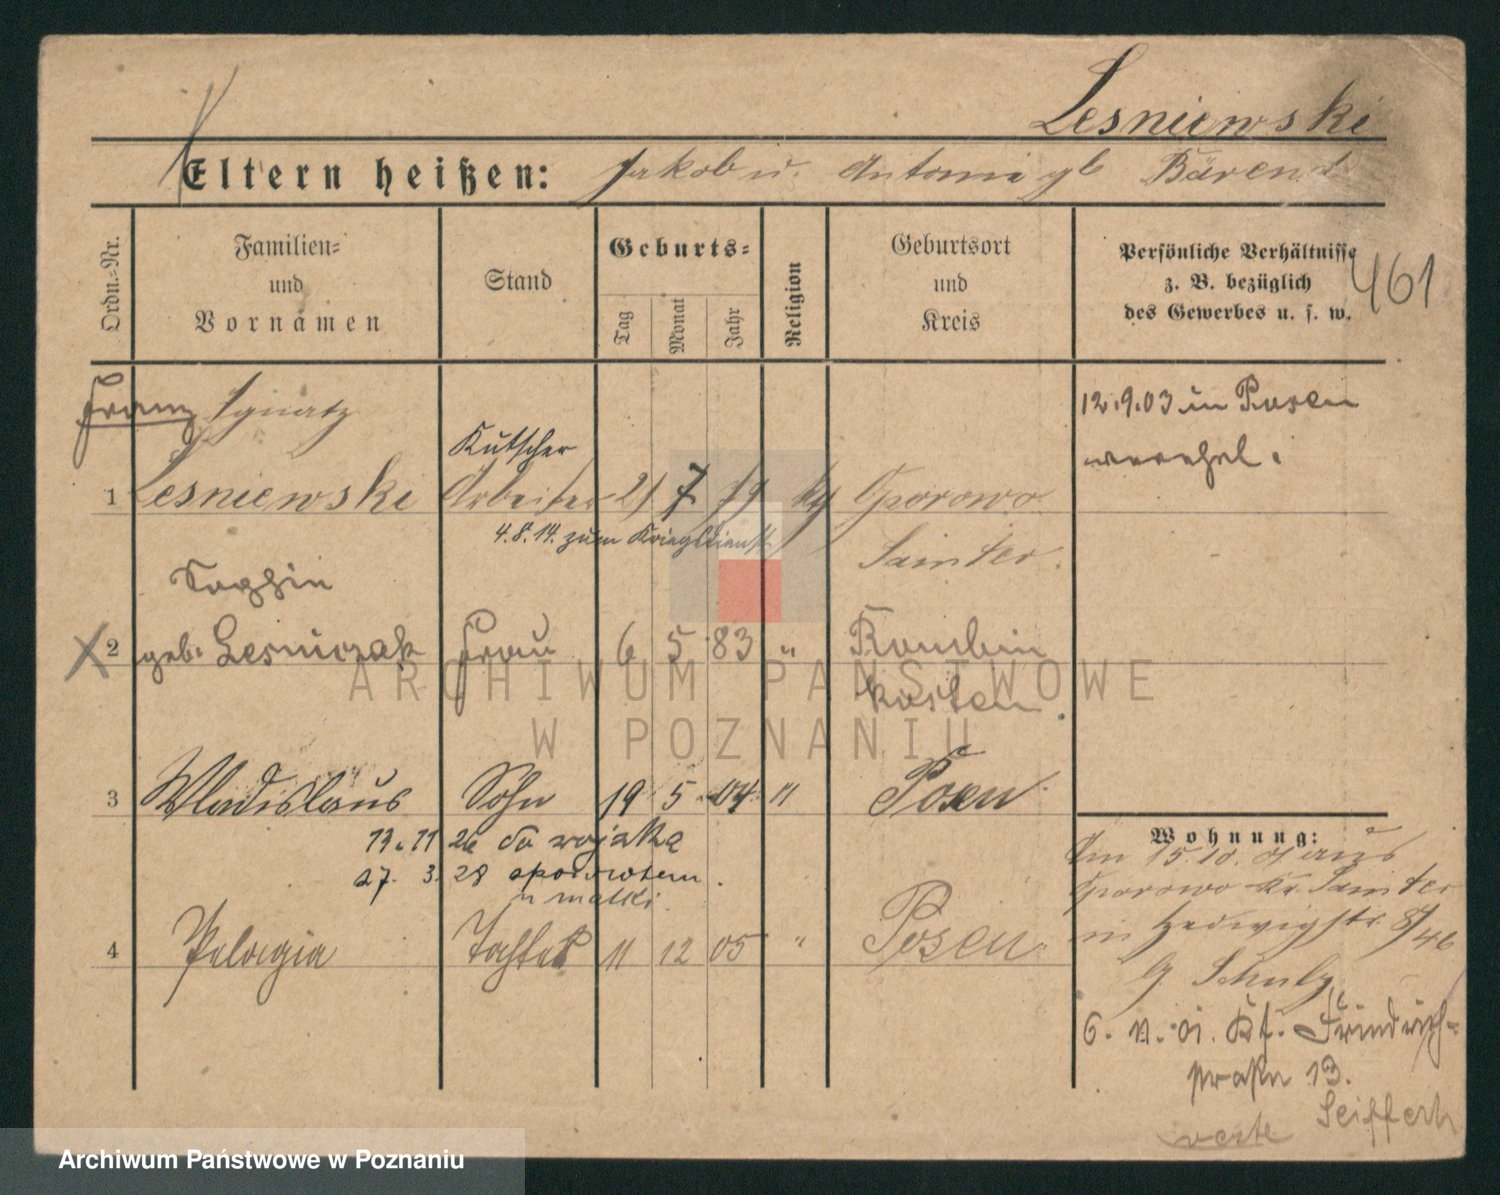 Lesniewski
Eltern heißen: Jakob u. Antonie gb Bärend
Ordn.=Nr.
Familien=
und
Vornamen
Stand
Geburts=
Tag
Monat
Jahr
Religion
Geburtsort
und
Kreis
Persönliche Verhältnisse
z. B. bezüglich
des Gewerbes u. s. w.
461
Franz Ignatz
Kutscher
1 Lesniewski Arbeiter 21 7 79 kg Oporowo
Samter
4.8.14. zum Kriegsdienst
12.9.03 in Posen
verehel.
Sophie
2 geb. Lesniczak Frau 6 5 83 "
Kosten
3 Wladislaus Sohn 19 5 04 " Posen
13.11 26 do wojska
27. 3. 28 spowrotem
u matki.
4 Pelagia Tochter 11 12 05 " Posen
Wohnung:
Am 15.10. 01 aus
Oporowo Kr. Samter
in Hedwigstr. 8/
b/ Schulz
6. V. 01. Kl.
straße 13.
Seiffert
verte
ARCHIWUM PAŃSTWOWE
W POZNANIU
Archiwum Państwowe w Poznaniu